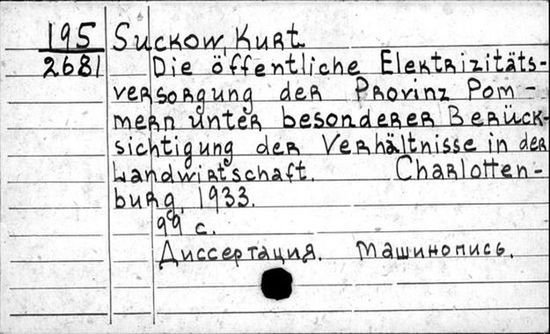 195 Suckow, Kurt
2681 Die öffentliche Elektrizitäts-
versorgung der Provinz Pom-
mern unter besonderer Berück-
sichtigung der Verhältnisse in der
Landwirtschaft. Charlotten-
burg, 1933.
99 с.
Диссертация. Машинопись.